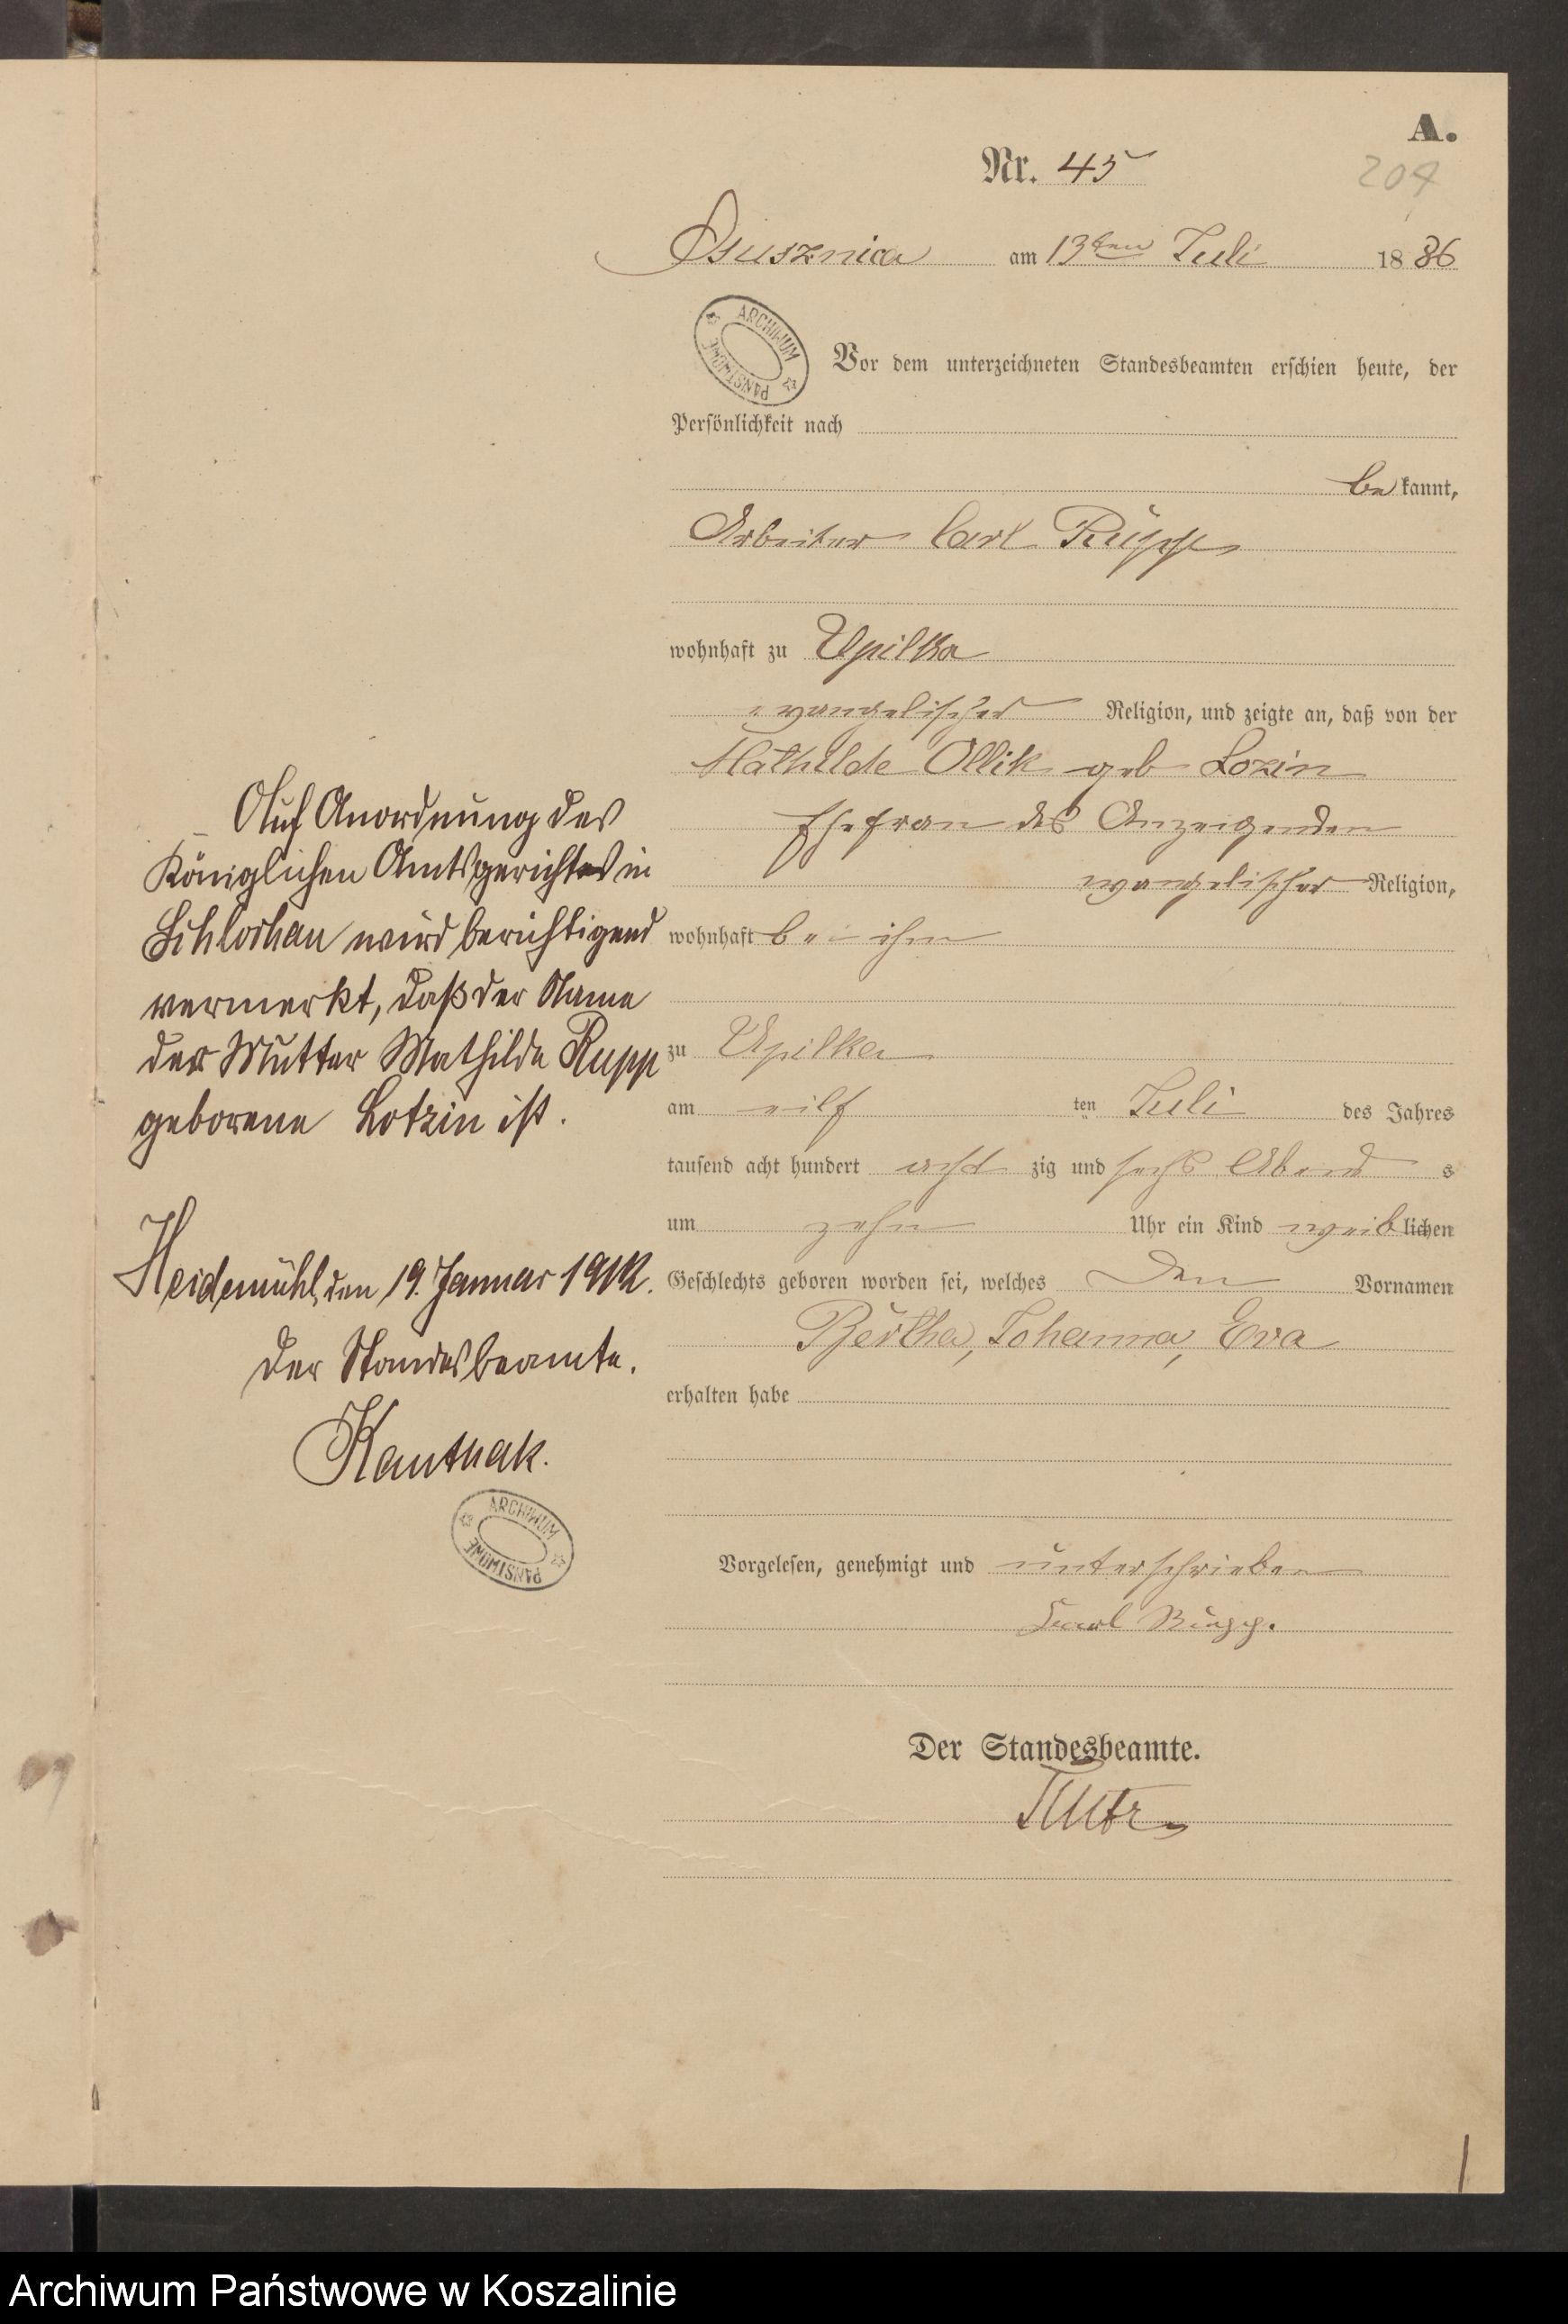 A.
Nr. 45
204
Osusznica am 13ten Juli 1886
ARCHIWUM PAŃSTWOWE
Vor dem unterzeichneten Standesbeamten erschien heute, der
Persönlichkeit nach
bekannt,
Arbeiter Carl Rupp
wohnhaft zu Upilka
evangelischer Religion, und zeigte an, daß von der
Mathilde Ollik geb Lozin
Ehefrau des Anzeigenden
evangelischer Religion,
wohnhaft bei ihm
zu Upilka
am eilf ten Juli des Jahres
tausend acht hundert acht zig und sechs Abend s
um zehn Uhr ein Kind weiblichen
Geschlechts geboren worden sei, welches den Vornamen
Bertha, Johanna, Eva
erhalten habe
Vorgelesen, genehmigt und unterschrieben
Karl Rupp.
Der Standesbeamte.
Auf Anordnung des
Königlichen Amtsgerichtes in
Schlochau wird berichtigend
vermerkt, daß der Name
der Mutter Mathilde Rupp
geborene Lotzin ist.
Heidemühl, den 19. Januar 1912.
Der Standesbeamte.
Kantak.
ARCHIWUM PAŃSTWOWE
Archiwum Państwowe w Koszalinie